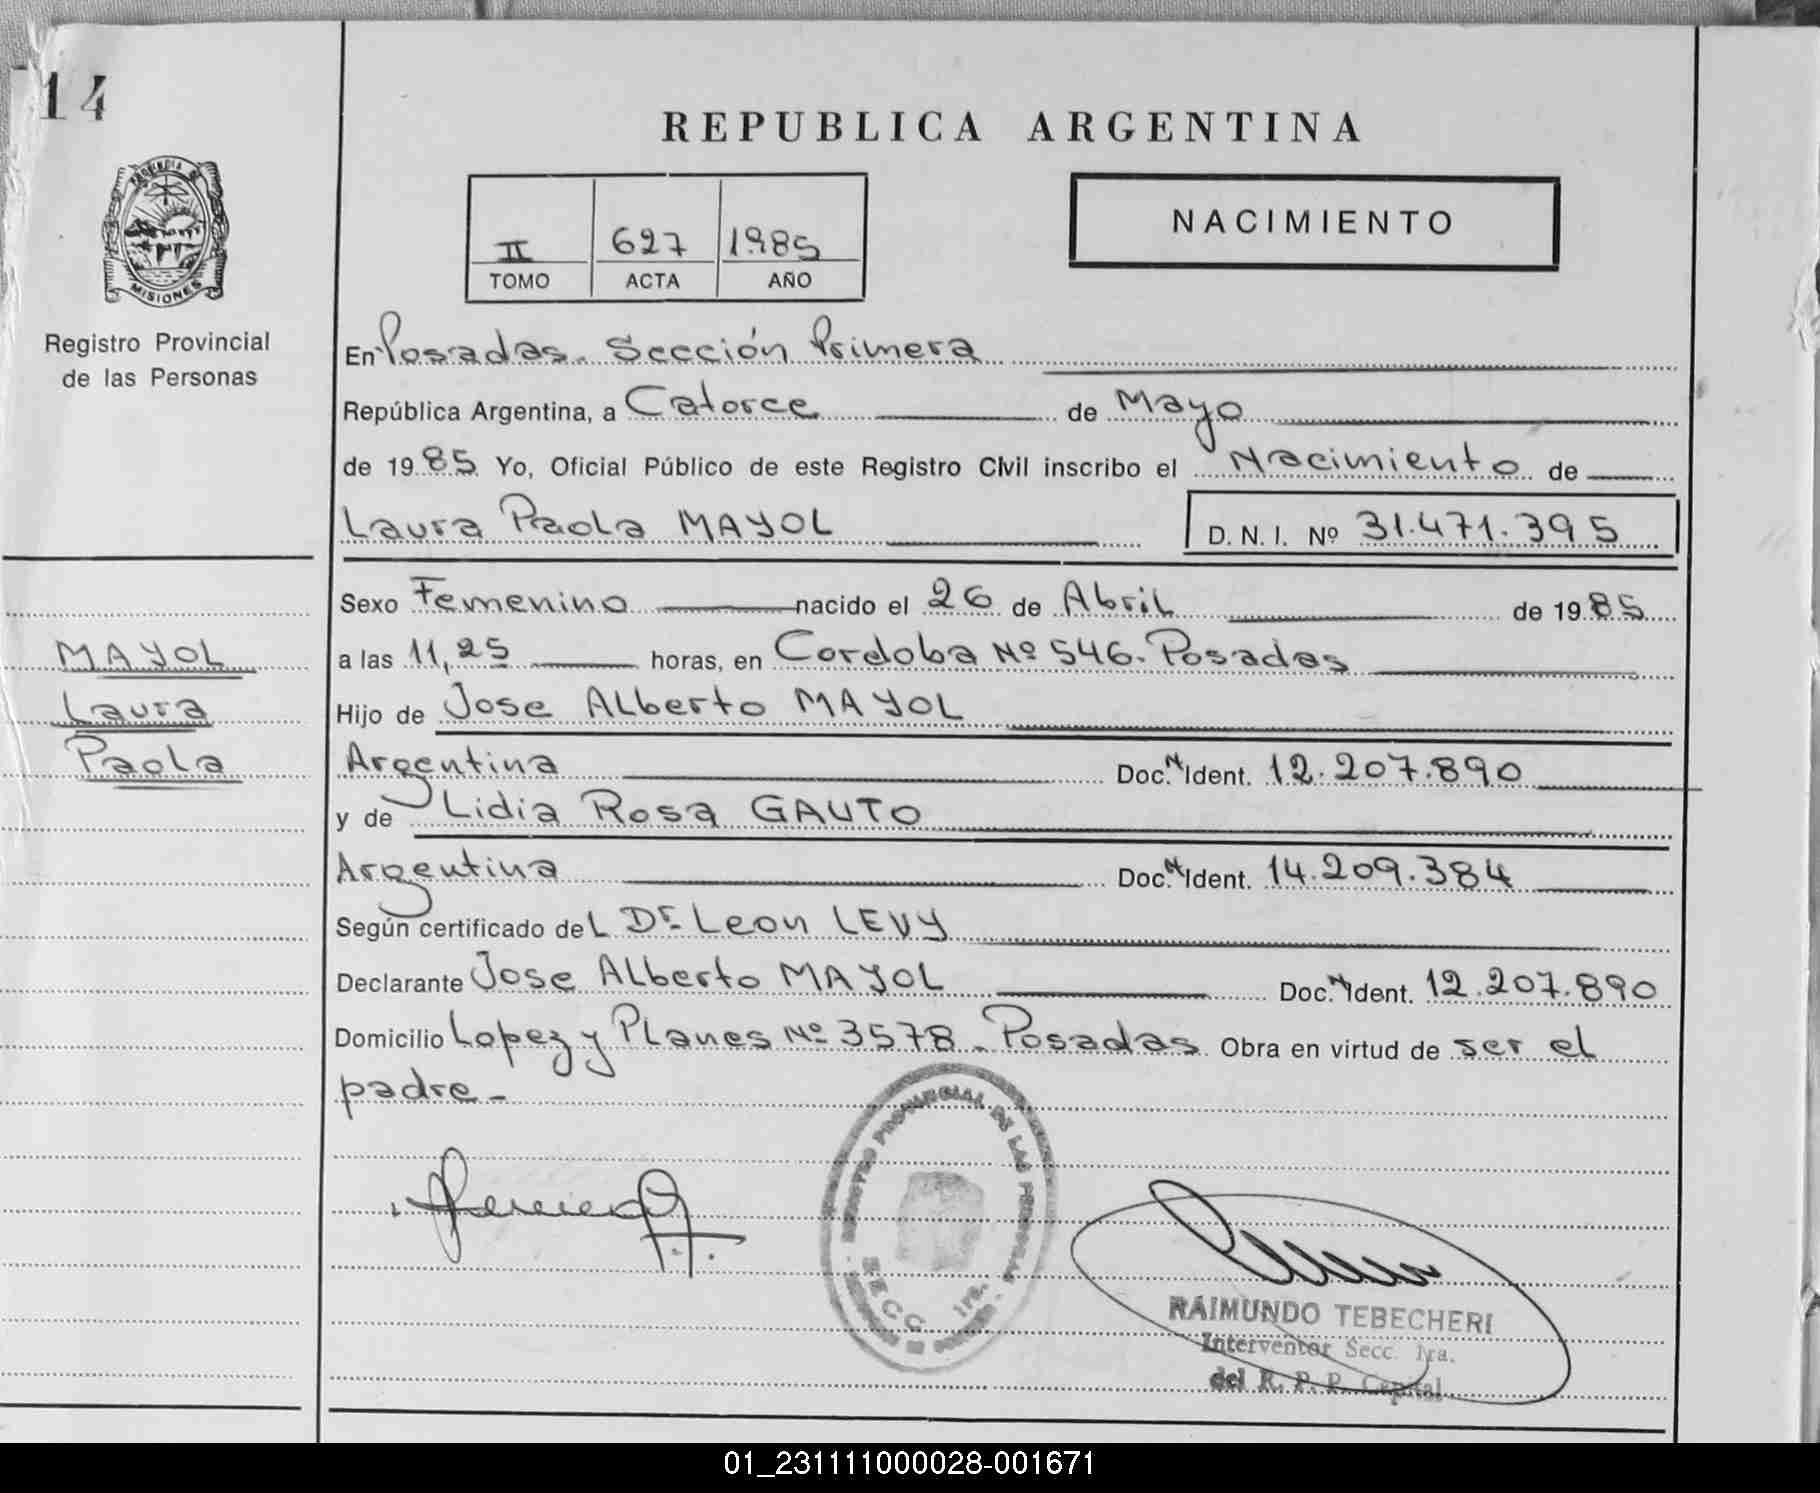 14
REPUBLICA ARGENTINA
PROVINCIA DE
MISIONES
Registro Provincial
de las Personas
II 627 1985
TOMO ACTA AÑO
NACIMIENTO
En Posadas. Sección Primera
República Argentina, a Catorce de Mayo
de 1985 Yo, Oficial Público de este Registro Civil inscribo el Nacimiento de
Laura Paola MAYOL D. N. I. Nº 31.471.395
Sexo Femenino nacido el 26 de Abril de 1985
a las 11,25 horas, en Cordoba Nº 546. Posadas
Hijo de Jose Alberto MAYOL
Argentina Doc. N. Ident. 12.207.890
y de Lidia Rosa GAUTO
Argentina Doc. N. Ident. 14.209.384
Según certificado del Dr Leon LEVY
Declarante Jose Alberto MAYOL Doc. N. Ident. 12.207.890
Domicilio Lopez y Planes Nº 3578 - Posadas Obra en virtud de ser el
padre -
MAYOL
Laura
Paola
REGISTRO PROVINCIAL DE LAS PERSONAS
SECC 1ra.
RAIMUNDO TEBECHERI
Interventor Secc. 1ra.
del R. P. P. Capital
01_231111000028-001671